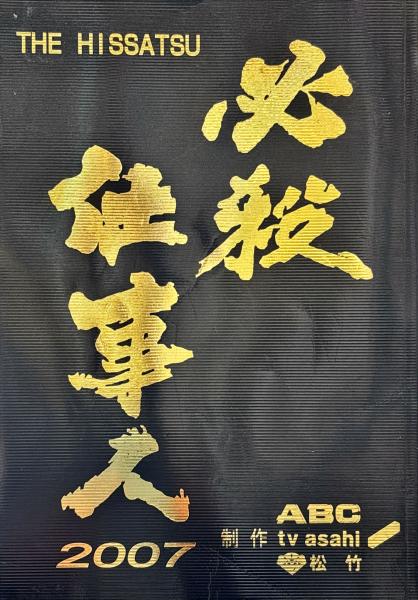 THE HISSATSU
必殺
仕事人
2007
制作
ABC
tv asahi
松竹